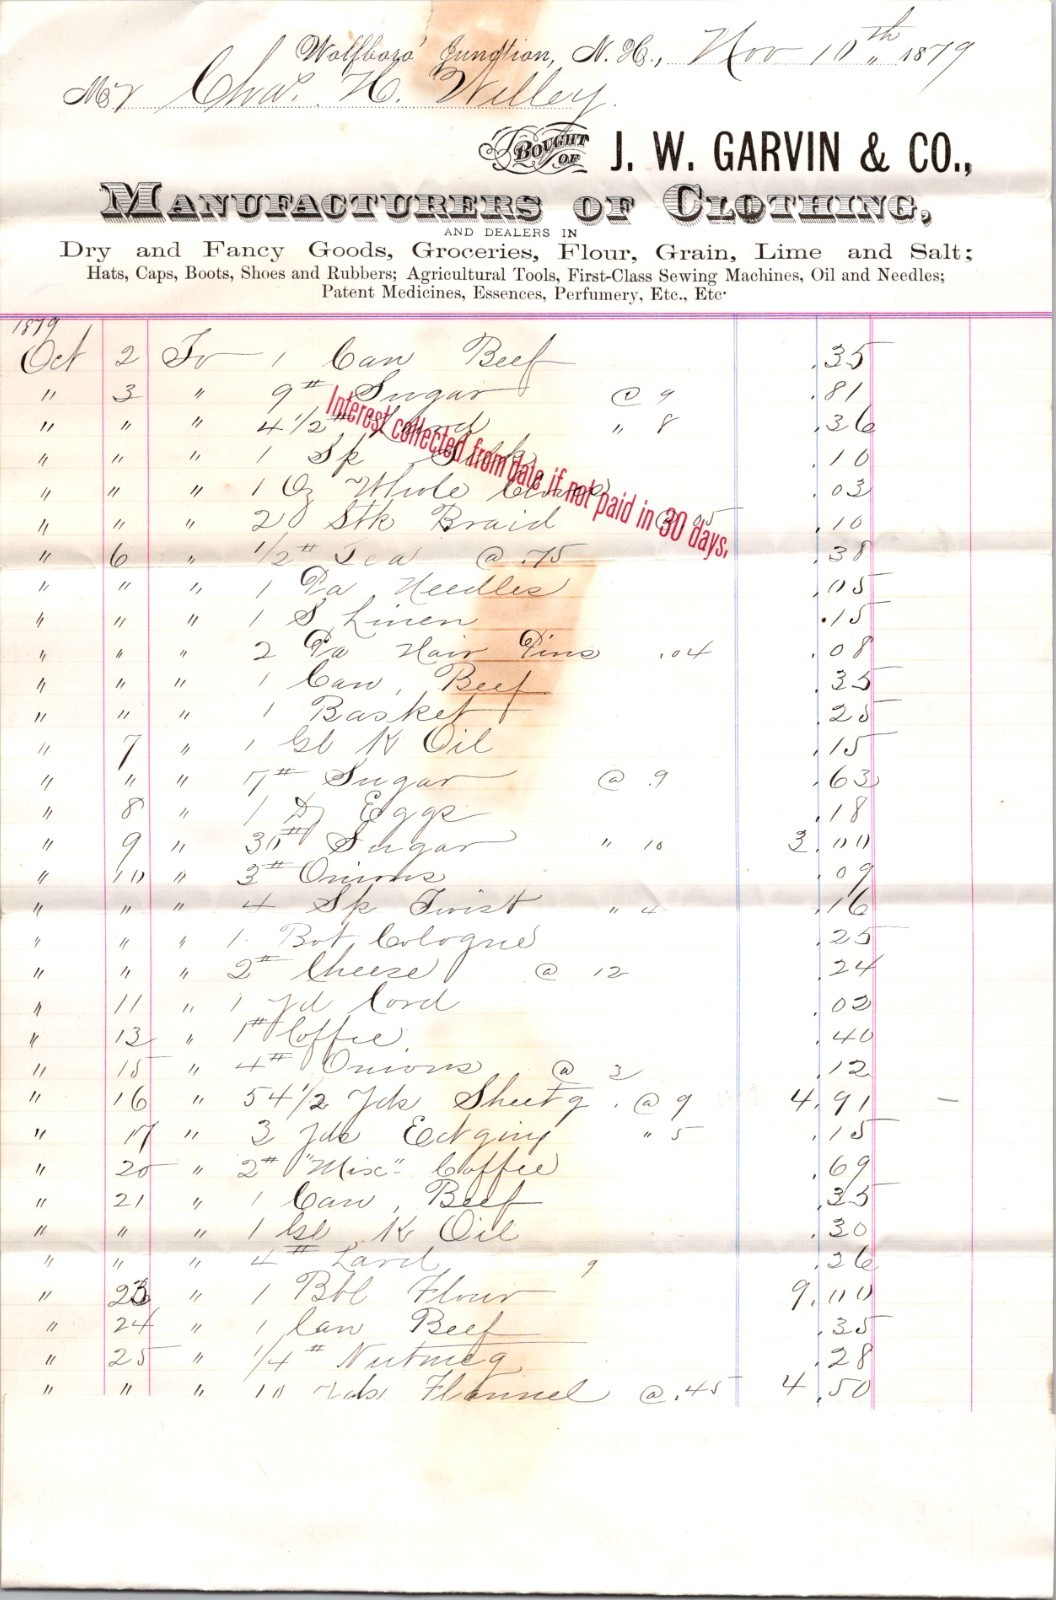 Wolfboro' Junction, N. H., Nov 10th 1879
Mr Chas. H. Willey.
BOUGHT OF J. W. GARVIN & CO.,
MANUFACTURERS OF CLOTHING,
AND DEALERS IN
Dry and Fancy Goods, Groceries, Flour, Grain, Lime and Salt;
Hats, Caps, Boots, Shoes and Rubbers; Agricultural Tools, First-Class Sewing Machines, Oil and Needles;
Patent Medicines, Essences, Perfumery, Etc., Etc.
1879
Oct 2 To 1 Can Beef .35
" 3 " 9# Sugar @ 9 .81
" " " 4 1/2# Lard " 8 .36
" " " 1 Sk Silk .10
" " " 1 Oz Whole .03
" " " 2 Stk Braid @ .05 .10
Interest collected from date if not paid in 30 days.
" 6 " 1/2# Tea @ .75 .38
" " " 1 Pa Needles .05
" " " 1 S Linen .15
" " " 2 Pa Hair Pins .04 .08
" " " 1 Can Beef .35
" " " 1 Basket .25
" 7 " 1 Gl K Oil .15
" " " 7# Sugar @ .9 .63
" 8 " 1 Dz Eggs .18
" 9 " 30# Sugar " 10 3.00
" 10 " 3# Onions .09
" " " 4 Sk Twist " 4 .16
" " " 1 Bot Cologne .25
" " " 2# Cheese @ 12 .24
" 11 " 1 Yd Cord .02
" 13 " 1# Coffie .40
" 15 " 4# Onions @ 3 .12
" 16 " 54 1/2 Yds Sheetg. @ 9 4.91 –
" 17 " 3 Yds Edging " 5 .15
" 20 " 2# "Mix" Coffie .69
" 21 " 1 Can Beef .35
" " " 1 Gl K Oil .30
" " " 4# Lard 9 .26
" 23 " 1 Bbl Flour 9.00
" 24 " 1 Can Beef .35
" 25 " 1/4# Nutmeg .28
" " " 10 Yds Flannel @ .45 4.50